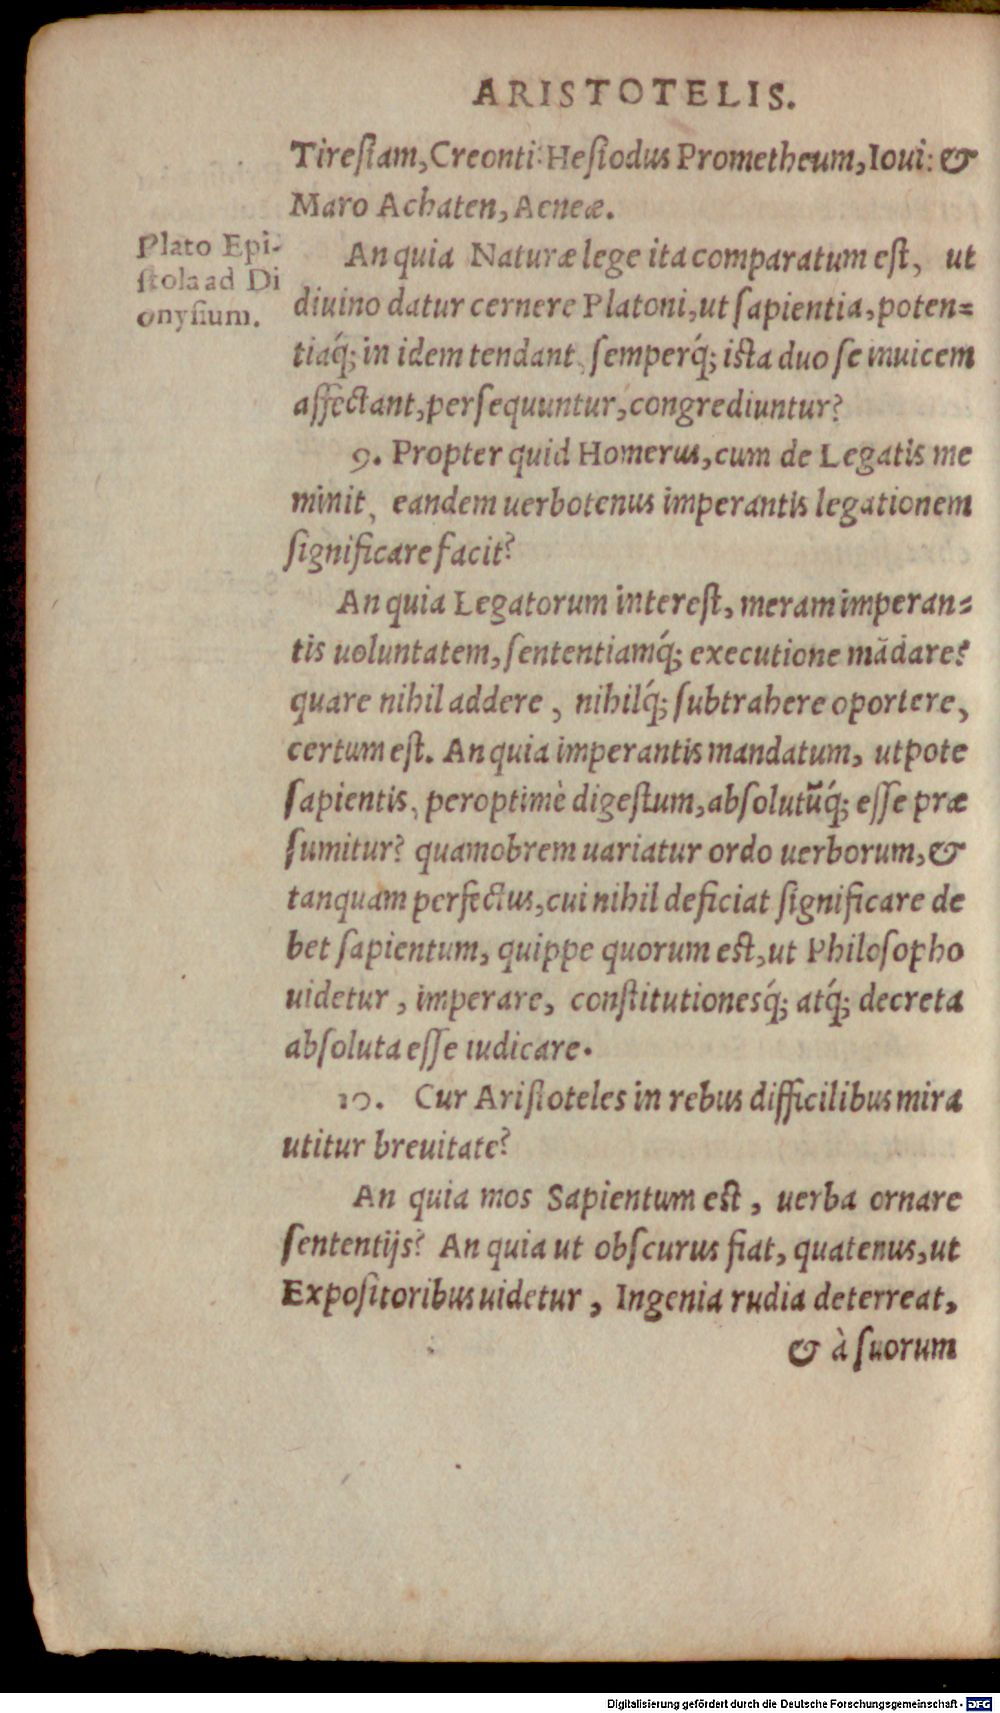 ARISTOTELIS.
Tiresiam, Creonti: Hesiodus Prometheum, Ioui: &
Maro Achaten, Aeneæ.
Plato Epi-
stola ad Di
onysium.
An quia Naturæ lege ita comparatum est, ut
diuino datur cernere Platoni, ut sapientia, poten=
tiaq́; in idem tendant, semperq́; ista duo se inuicem
affectant, persequuntur, congrediuntur?
9. Propter quid Homerus, cum de Legatis me
minit, eandem uerbotenus imperantis legationem
significare facit?
An quia Legatorum interest, meram imperan=
tis uoluntatem, sententiamq́; executione mādare?
quare nihil addere, nihilq́; subtrahere oportere,
certum est. An quia imperantis mandatum, utpote
sapientis, peroptimè digestum, absolutūq́; esse præ
sumitur? quamobrem uariatur ordo uerborum, &
tanquam perfectus, cui nihil deficiat significare de
bet sapientum, quippe quorum est, ut Philosopho
uidetur, imperare, constitutionesq́; atq́; decreta
absoluta esse iudicare.
10. Cur Aristoteles in rebus difficilibus mira
utitur breuitate?
An quia mos Sapientum est, uerba ornare
sententijs? An quia ut obscurus fiat, quatenus, ut
Expositoribus uidetur, Ingenia rudia deterreat,
& à suorum
Digitalisierung gefördert durch die Deutsche Forschungsgemeinschaft - DFG